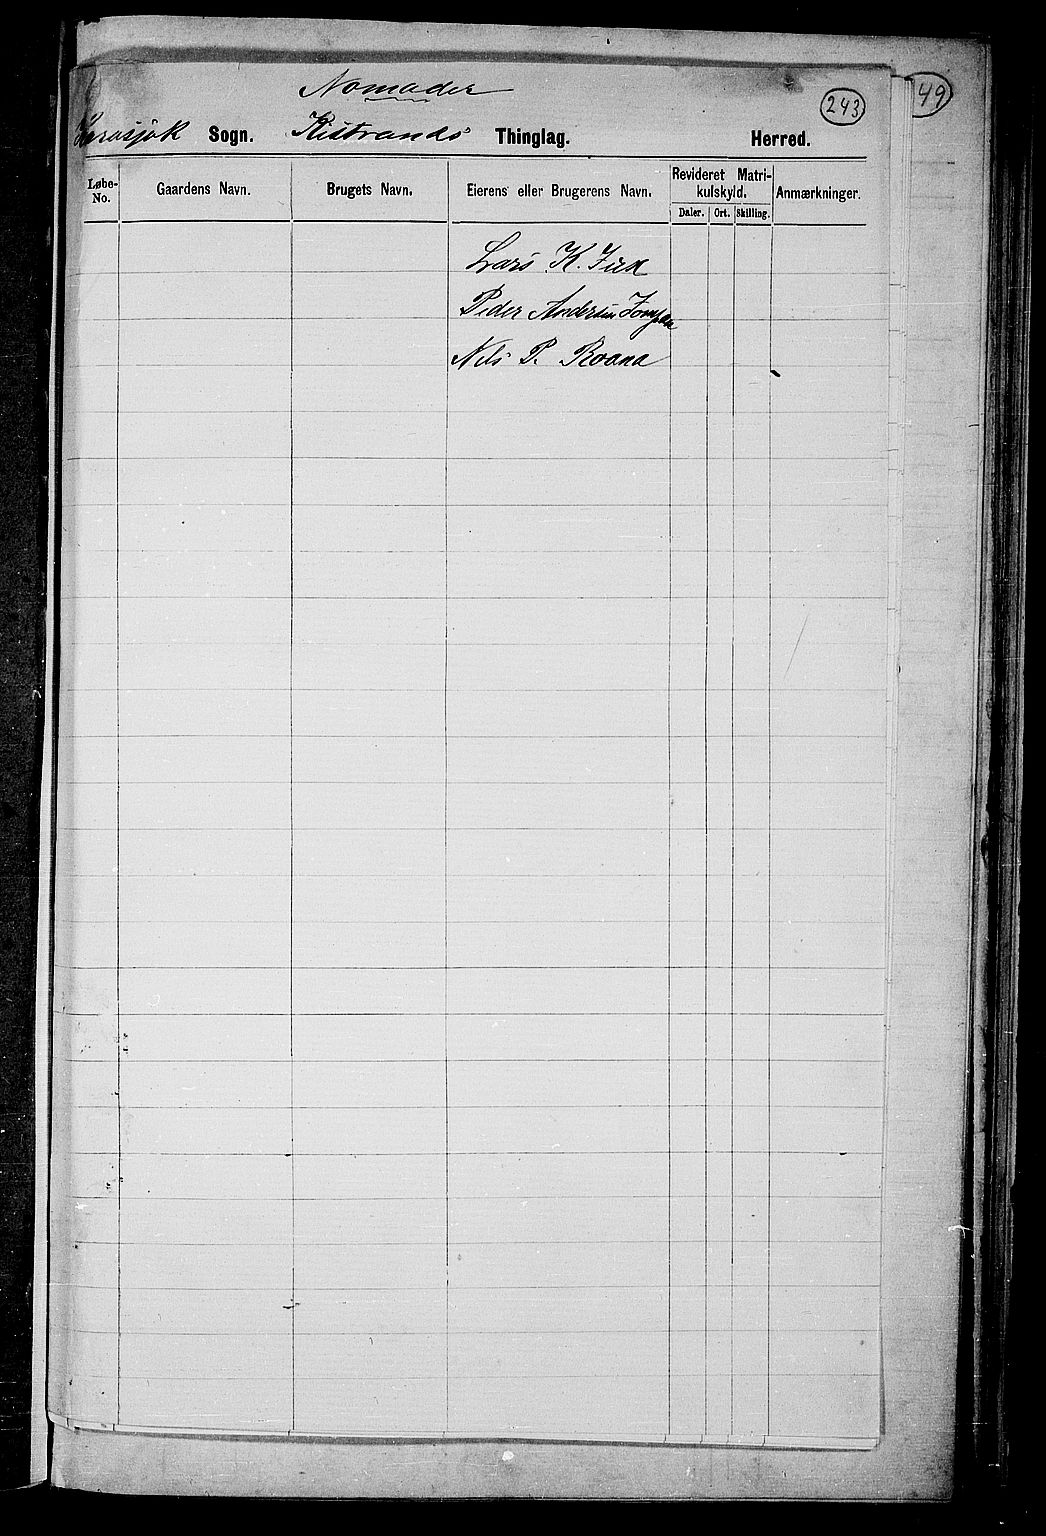 Nomader
243
49
Karasjok Sogn. Kistrands Thinglag. Herred.
Løbe-No. Gaardens Navn. Brugets Navn. Eierens eller Brugerens Navn. Revideret Matrikulskyld. Anmærkninger.
Daler. Ort. Skilling.
Lars K.
Peder Andersen
Nils P. Roana